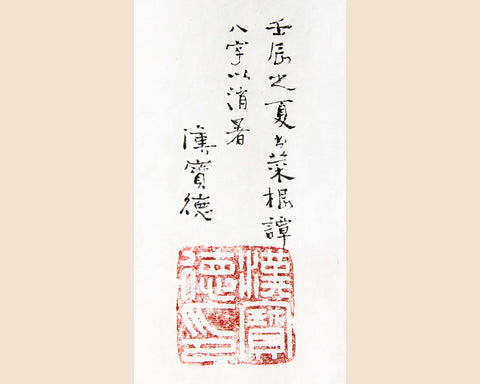 壬辰之夏书菜根譚
八字以消暑
漢寶德
漢寶
德印